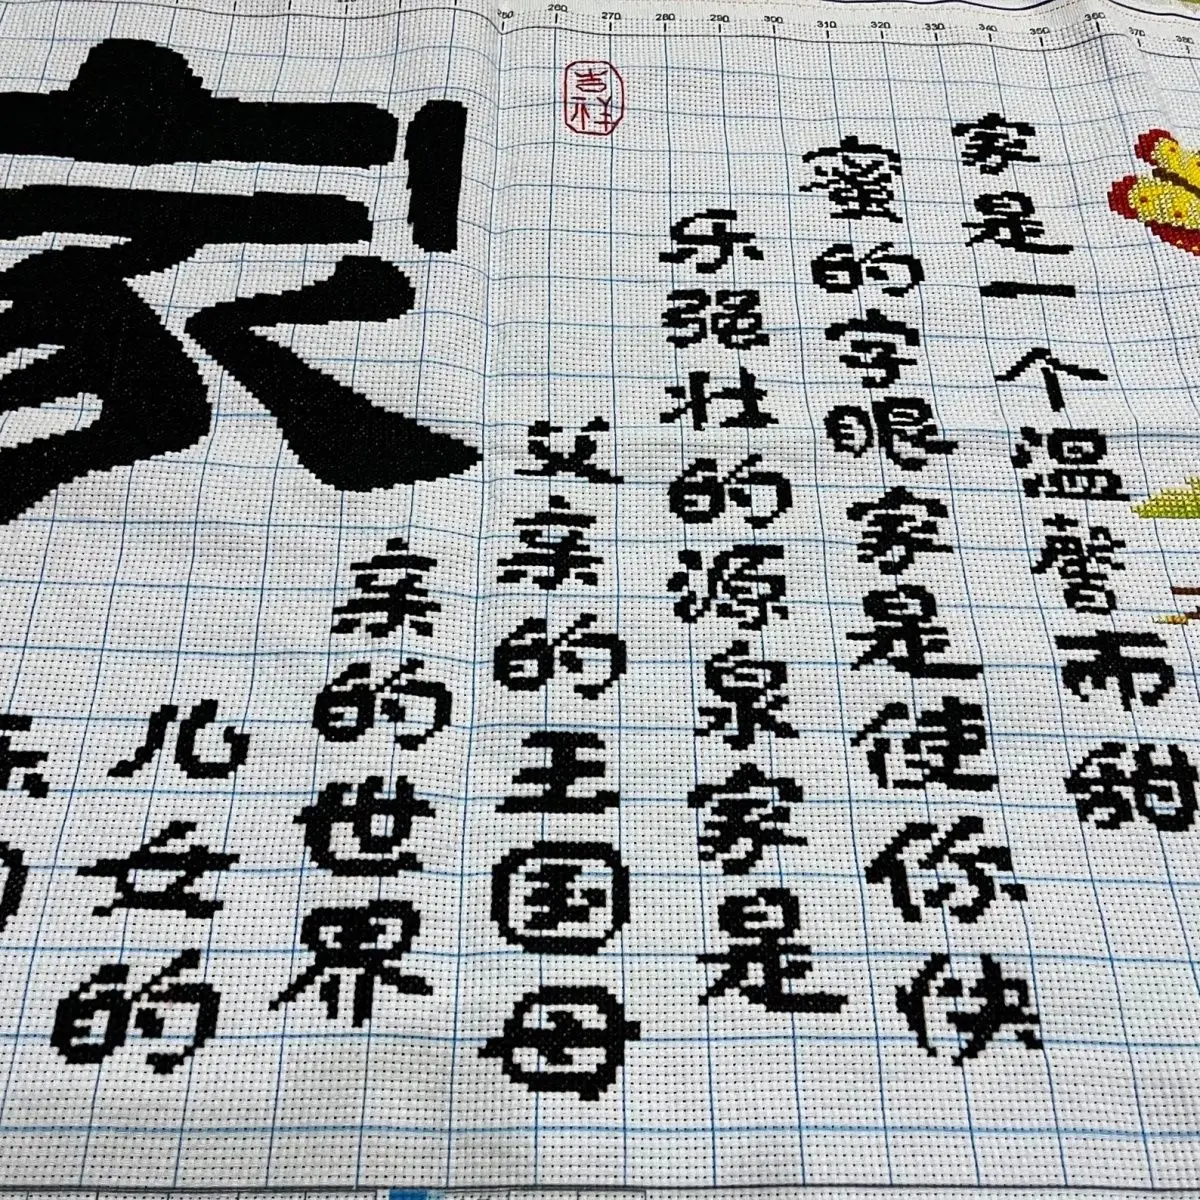 家是一个温馨而甜
蜜的字眼家是使你快
乐强壮的源泉家是
父亲的王国母
亲的世界
儿女的
乐
家
吉祥
250 260 270 280 290 300 310 320 330 340 350 360 370 380